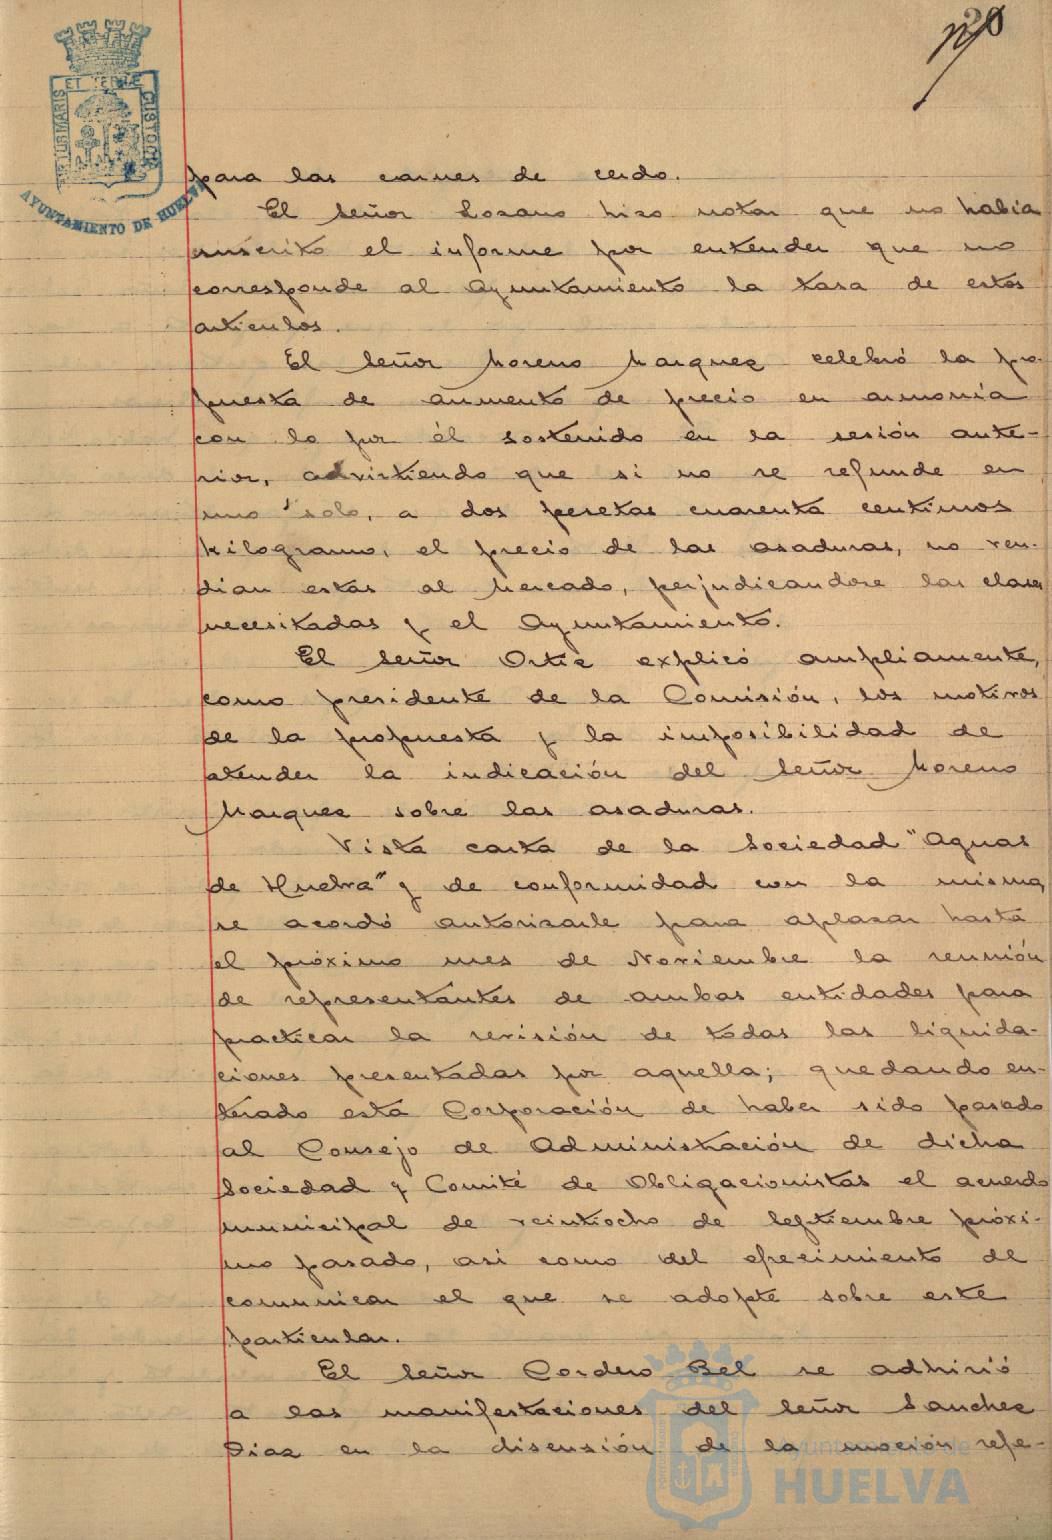 para las carnes de cerdo.
El Señor Lozano hizo notar que no había
suscrito el informe por entender que no
corresponde al Ayuntamiento la tasa de estos
artículos.
El Señor Moreno Marquez celebró la pro-
puesta de aumento de precio en armonía
con lo por él sostenido en la sesión ante-
rior, advirtiendo que si no se refunde en
uno solo, a dos pesetas cuarenta centimos
kilogramo, el precio de las asaduras, no ven-
drian estas al Mercado, perjudicandose las clases
necesitadas y el Ayuntamiento.
El Señor Ortiz explicó ampliamente,
como presidente de la Comisión, los motivos
de la propuesta y la imposibilidad de
atender la indicación del Señor Moreno
Marquez sobre las asaduras.
Vista carta de la Sociedad "Aguas
de Huelva" y de conformidad con la misma,
se acordó autorizarle para aplazar hasta
el próximo mes de Noviembre la reunión
de representantes de ambas entidades para
practicar la revisión de todas las liquida-
ciones presentadas por aquella; quedando en-
terado esta Corporación de haber sido pasado
al Consejo de Administración de dicha
Sociedad y Comité de Obligacionistas el acuerdo
municipal de veintiocho de Septiembre próxi-
mo pasado, asi como del ofrecimiento de
comunicar el que se adopte sobre este
particular.
El Señor Cordero Bel se adhirió
a las manifestaciones del Señor Sanchez
Diaz en la discusión de la moción refe-
AYUNTAMIENTO DE HUELVA
PORTUS MARIS ET TERRAE CUSTODIA
Ayuntamiento de
HUELVA